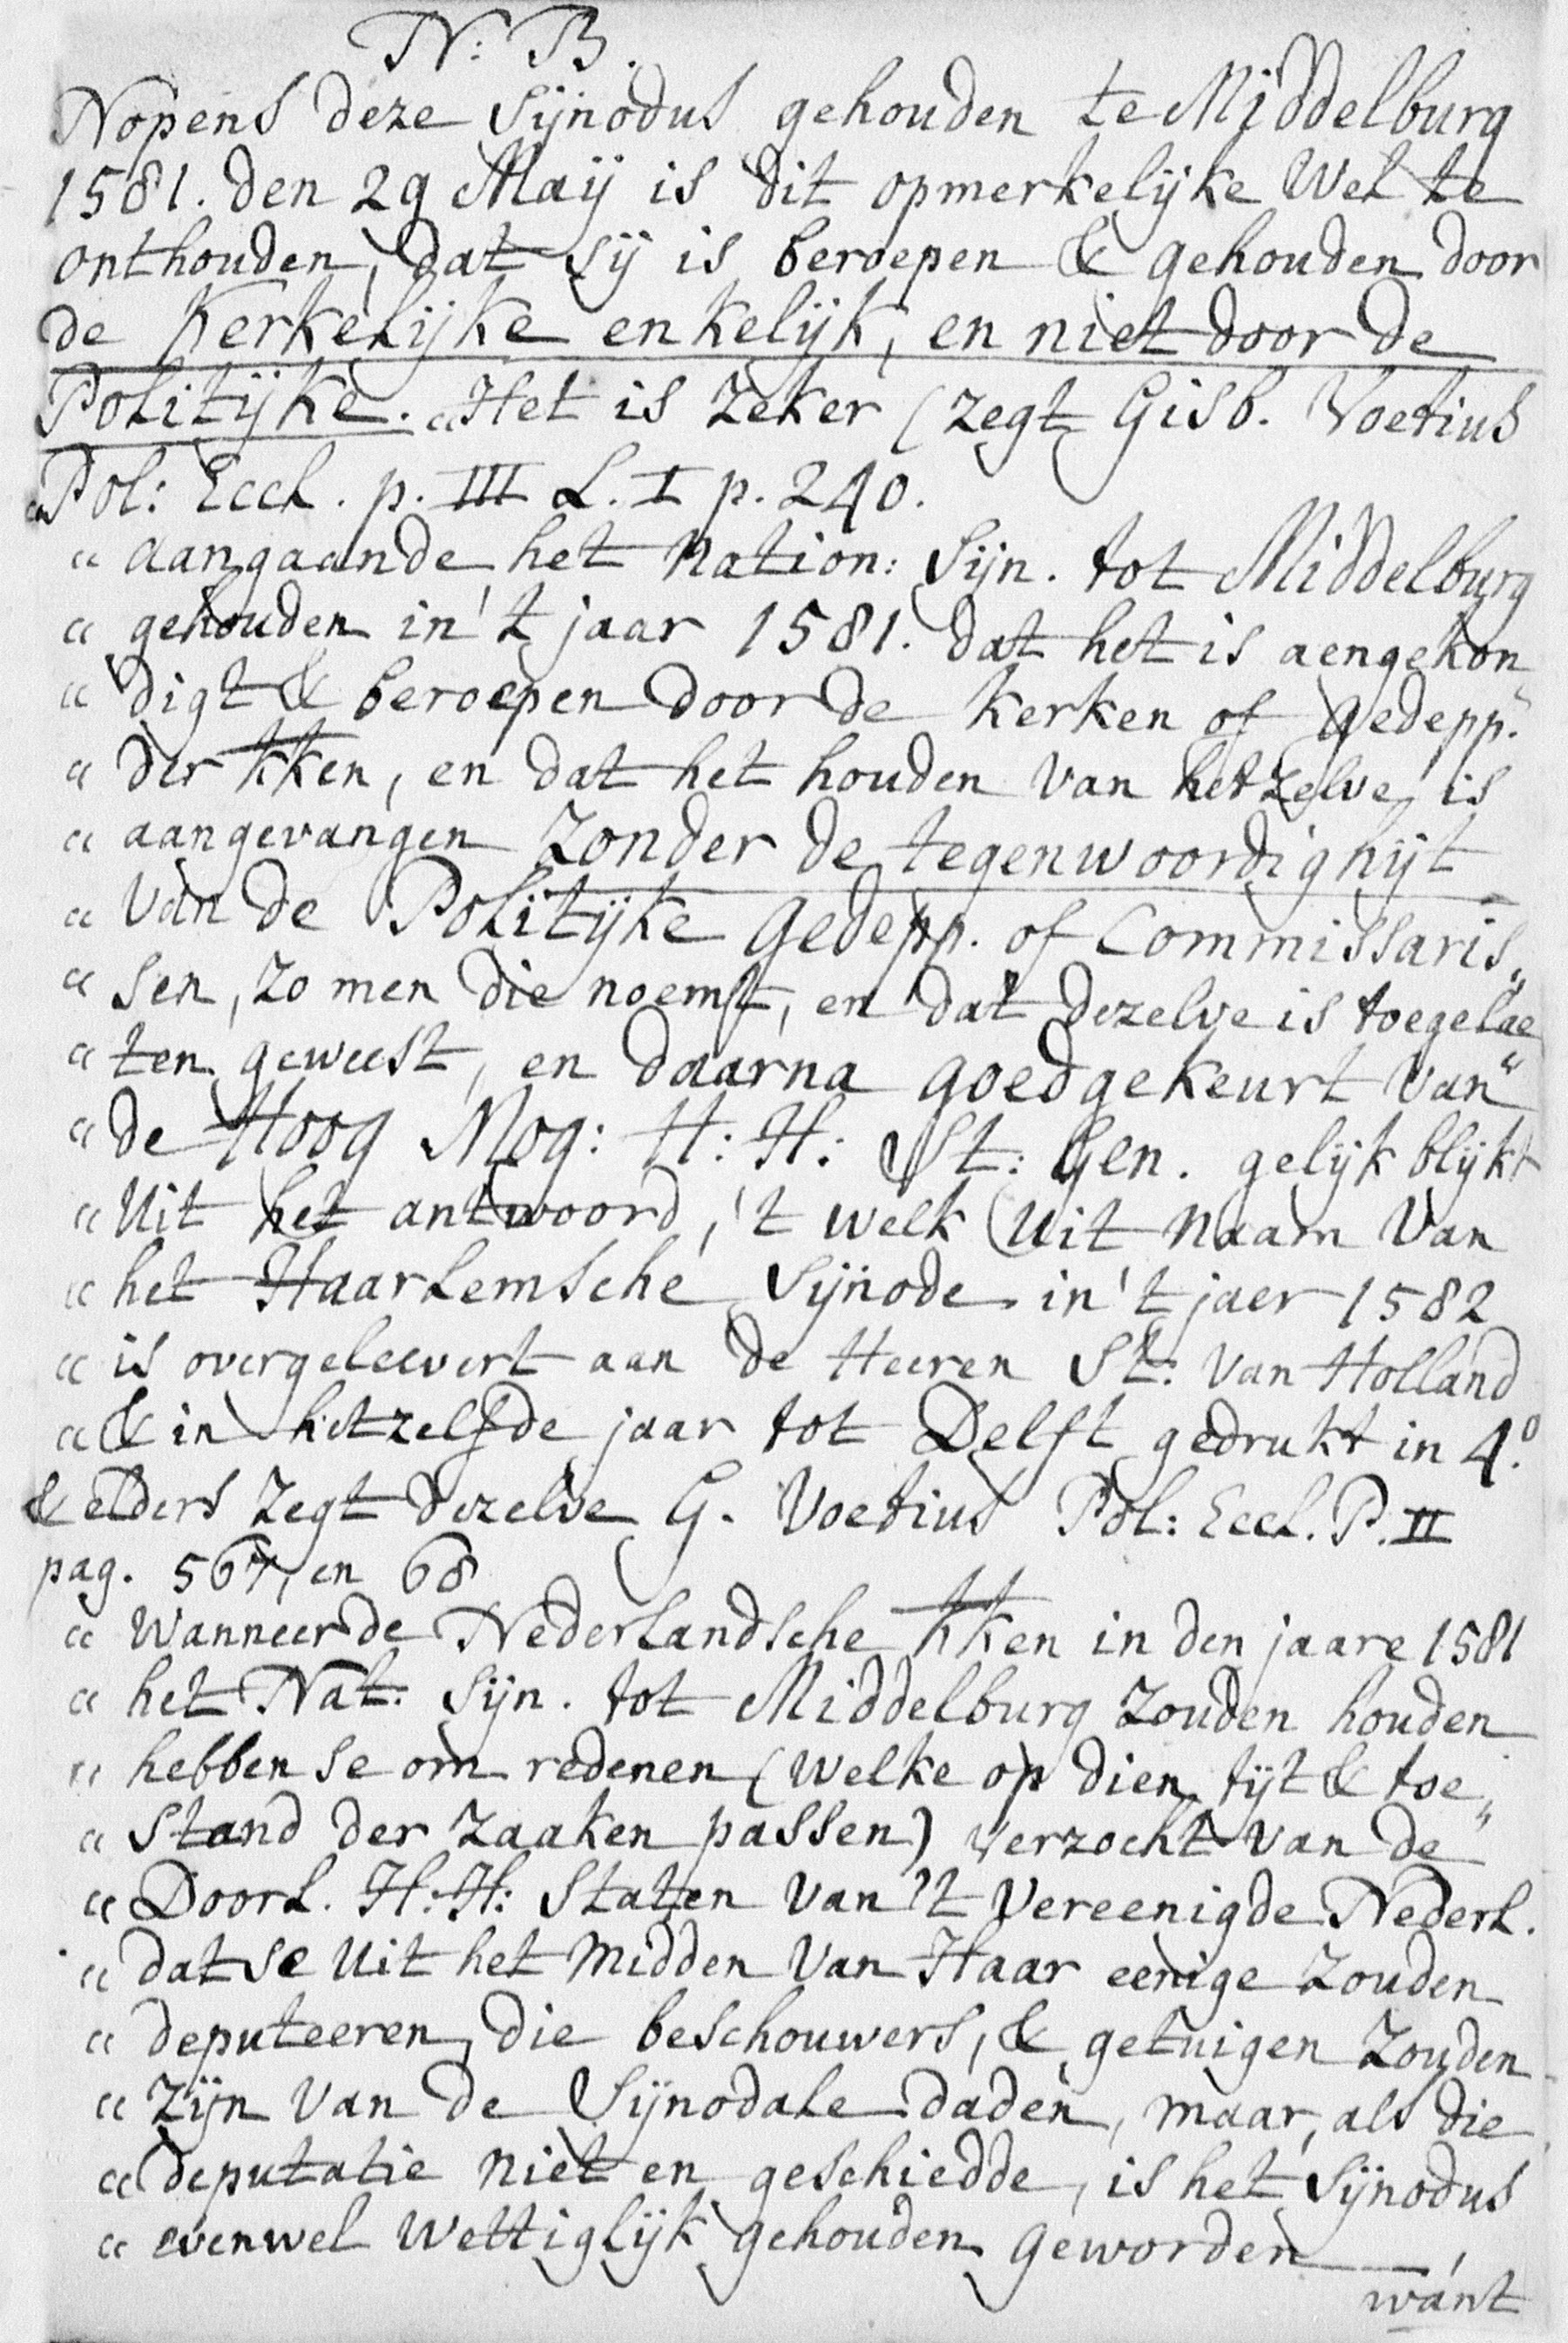 N: B.
Nopens deze Sijnodus gehouden te Middelburg
1581. den 29 Maÿ is dit opmerkelijke Wel te
onthouden, dat sij is beroepen & gehouden door
de Kerkelijke enkelijk, en niet door de
Politijke. „Het is zeker (zegt Gisb. Voetius
„Pol: Eccl. p. III L. I p. 240.
„ aangaande het Nation: Sijn. tot Middelburg
„ gehouden in 't jaar 1581. dat het is aengekon
„ digt & beroepen door de Kerken of gedepp."
„ der kken, en dat het houden van hetzelve is
„ aangevangen zonder de tegenwoordighijt
„ Van de Politijke gedepp. of Commissaris„
„ sen, zo men die noemt, en dat dezelve is toegelae
„ ten geweest, en daarna goedgekeurt van"
„ de Hoog Mog: H: H: St: Gen. gelijk blijkt
„ Uit het antwoord, 't welk Uit Naam Van
„ het Haarlemsche Sijnode in 't jaer 1582
„ is overgeleevert aan de Heeren St: Van Holland
„ & in hetzelfde jaar tot Delft gedrukt in 4.º
& elders zegt dezelve G. Voetius Pol: Eccl. P. II
pag. 567, en 68
„ Wanneer de Nederlandsche kken in den jaare 1581
„ het Nat: Sijn. tot Middelburg zouden houden
„ hebben se om redenen (welke op dien tijt & toe„
„ stand der zaaken passen) verzocht van de"
„ Doorl. H: H: Staten van 't Vereenigde Nederl.
„ dat se Uit het midden Van Haar eenige zouden
„ deputeeren, die beschouwers, & getuigen zouden
„ zijn Van de Sijnodale daden, maar, als die
„ deputatie niet en geschiedde, is het Sijnodus
„ evenwel Wettiglijk gehouden geworden
want